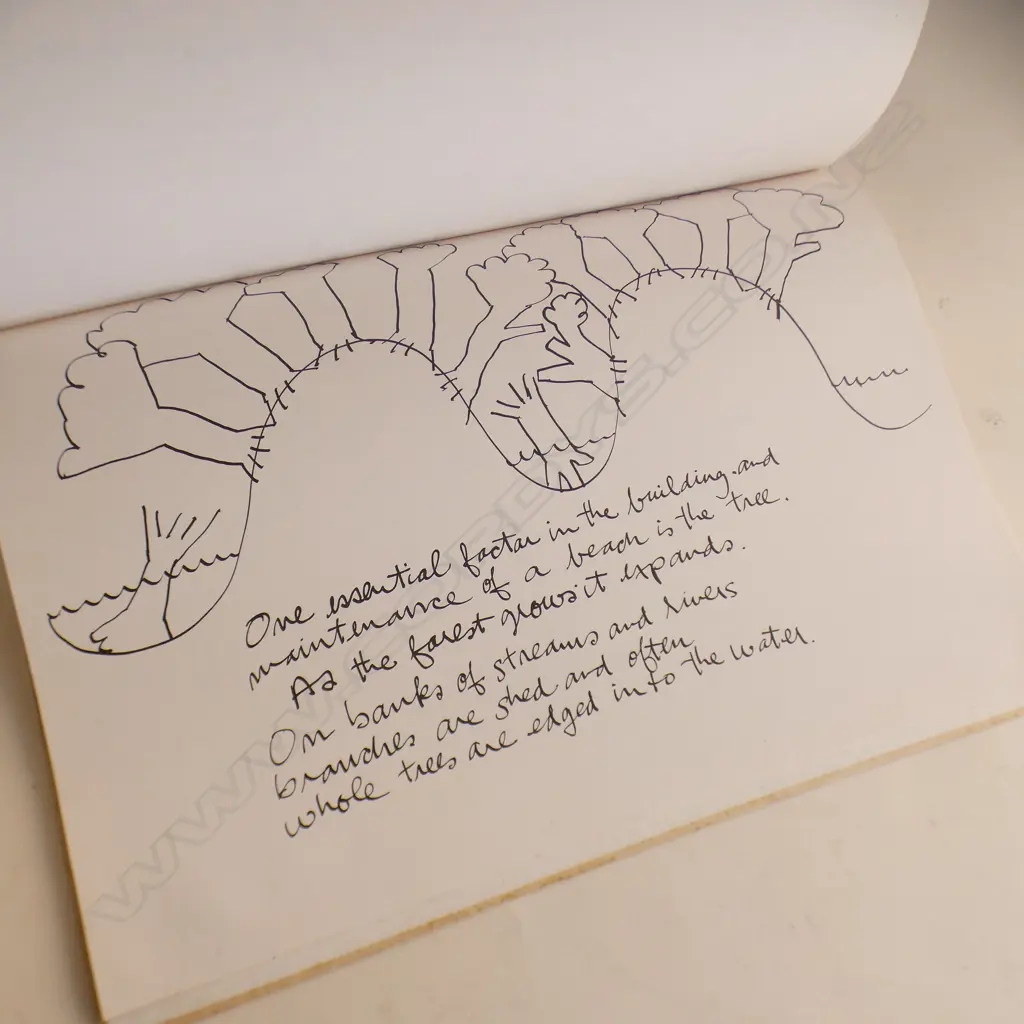 One essential factor in the building and
maintenance of a beach is the tree.
As the forest grows it expands.
On banks of streams and rivers
branches are shed and often
whole trees are edged into the water.